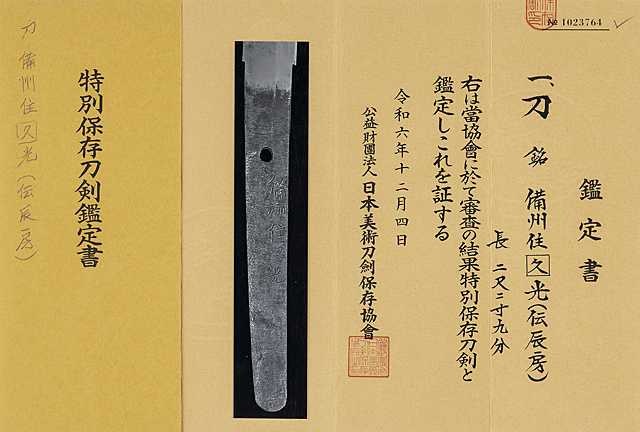 № 1023764
鑑定書
一、刀 銘 備州住久光(伝辰房)
長 二尺二寸九分
右は當協會に於て審査の結果特別保存刀剣と
鑑定しこれを証する
令和六年十二月四日
公益財團法人日本美術刀剣保存協會
備州住久光
特別保存刀剣鑑定書
刀 備州住久光(伝辰房)